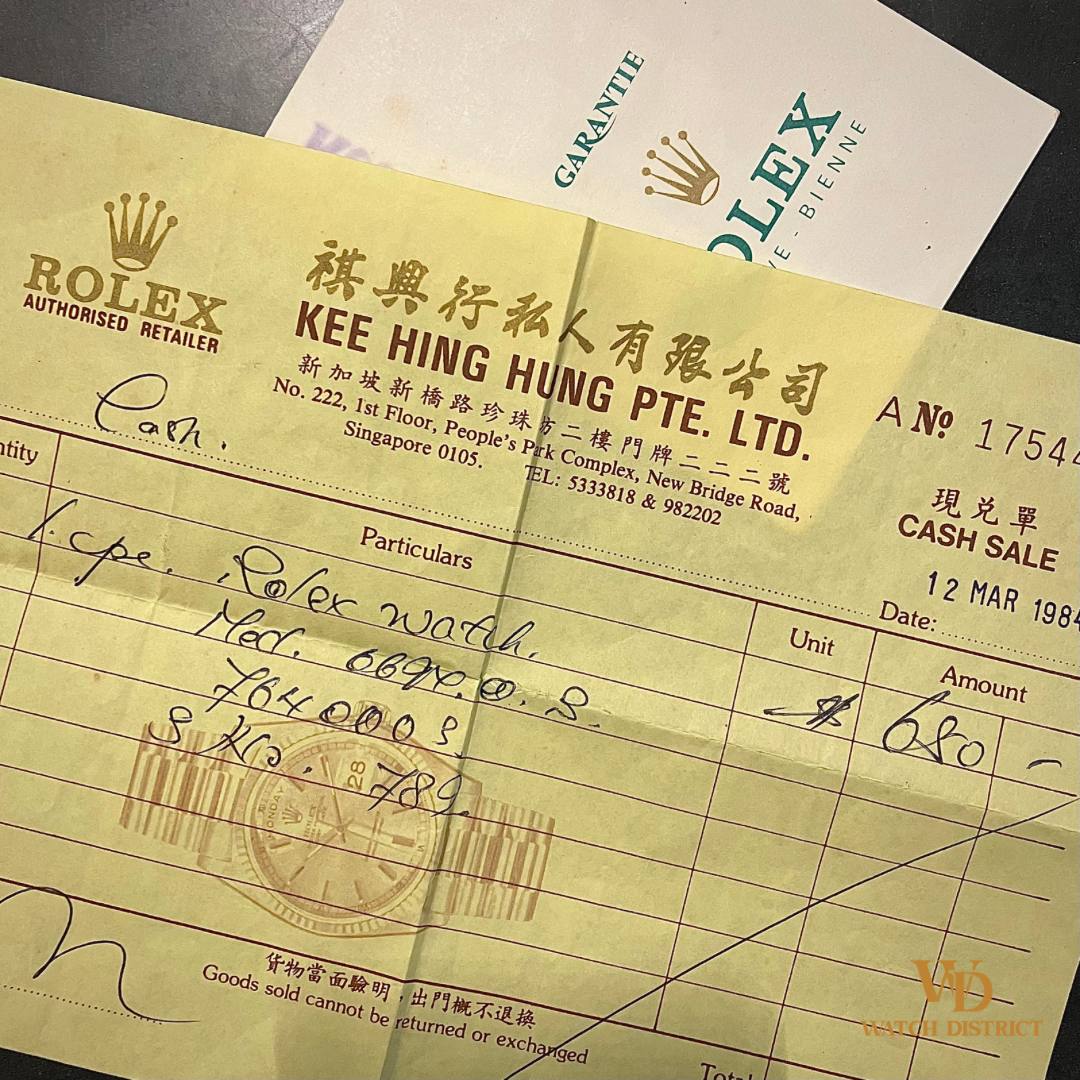 GARANTIE
ROLEX
- BIENNE
ROLEX
AUTHORISED RETAILER
祺興行私人有限公司
KEE HING HUNG PTE. LTD.
新加坡新橋路珍珠坊二樓門牌二二二號
No. 222, 1st Floor, People's Park Complex, New Bridge Road,
Singapore 0105.
TEL: 5333818 & 982202
A No 17544
現兑單
CASH SALE
12 MAR 1984
Date:
Cash.
ntity
Particulars
Unit
Amount
1. cpe. Rolex watch.
Mod. 6694.0.S.
$ 680 -
7640003
S No. 789
MONDAY
28
貨物當面驗明，出門概不退換
Goods sold cannot be returned or exchanged
Total
WD
WATCH DISTRICT